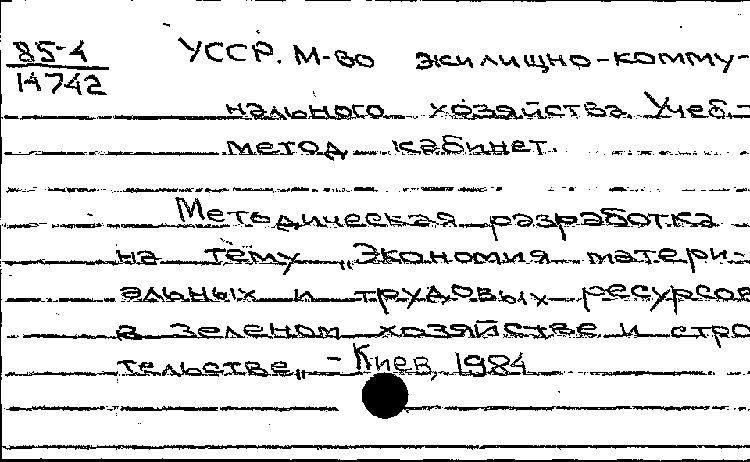 85-4
14742
УССР. М-во жилищно-комму-
нального хозяйства. Учеб.-
метод. кабинет.
Методическая разработка
на тему „Экономия матери-
альных и трудовых ресурсов
в зеленом хозяйстве и стро
тельстве„ - Киев, 1984